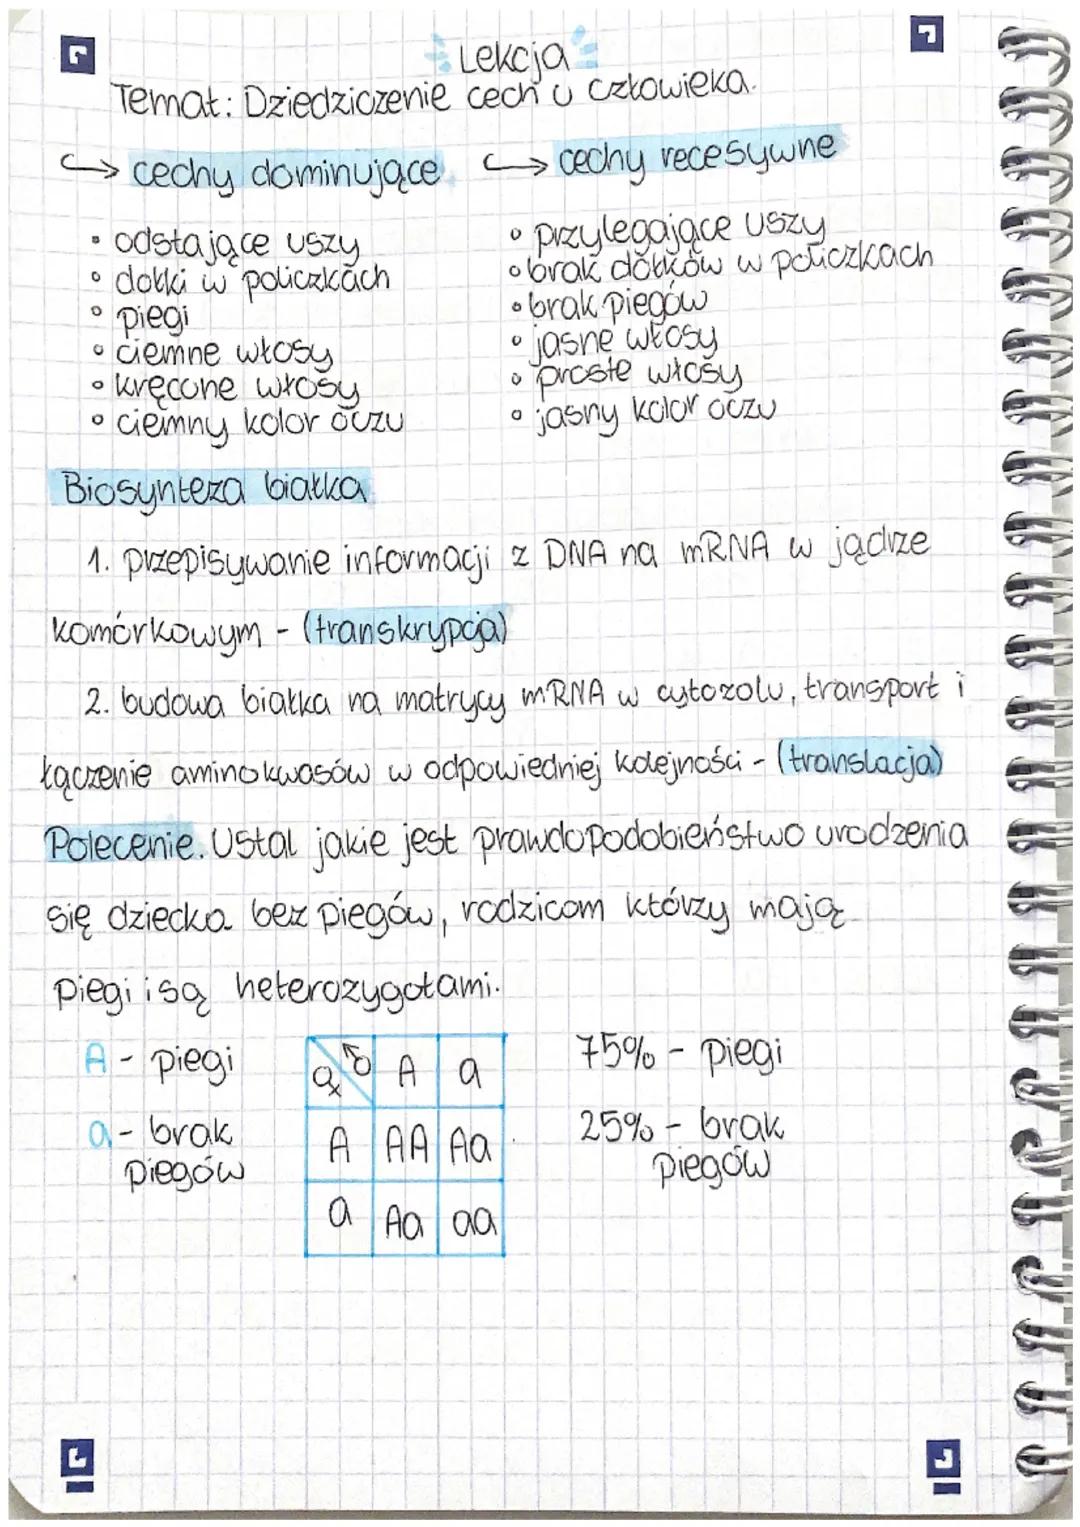 Lekcja
Temat: Dziedziczenie cech u człowieka.
↳ cechy dominujące
• odstające uszy
• dołki w policzkach
• piegi
• ciemne włosy
• kręcone włosy
• ciemny kolor oczu
↳ cechy recesywne
• przylegające uszy
• brak dołków w policzkach
• brak piegów
• jasne włosy
• proste włosy
• jasny kolor oczu
Biosynteza białka
1. przepisywanie informacji z DNA na mRNA w jądrze
komórkowym - (transkrypcja)
2. budowa białka na matrycy mRNA w cytozolu, transport i
łączenie aminokwasów w odpowiedniej kolejności - (translacja)
Polecenie. Ustal jakie jest prawdopodobieństwo urodzenia
się dziecka bez piegów, rodzicom którzy mają
piegi i są heterozygotami.
A - piegi
a - brak
piegów
♀ ♂ A a
A AA Aa
a Aa aa
75% - piegi
25% - brak
piegów